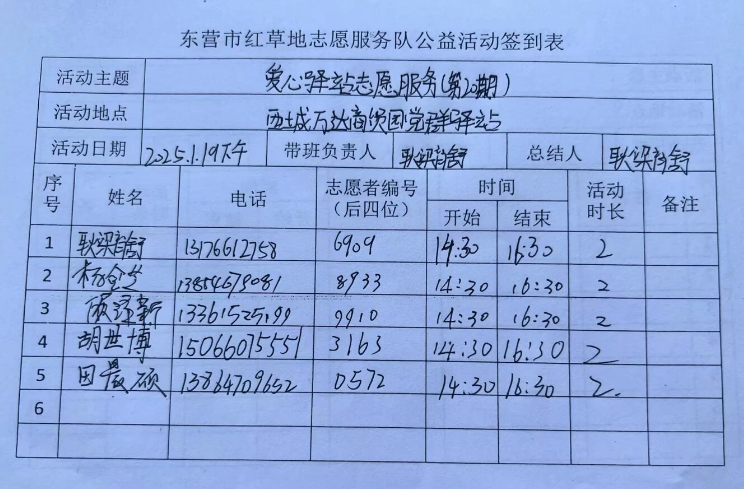 东营市红草地志愿服务队公益活动签到表
活动主题 爱心驿站志愿服务(第20期)
活动地点 西城万达商贸园党群驿站
活动日期 2025.1.19下午 带班负责人 耿梁 总结人 耿梁
序号 姓名 电话 志愿者编号(后四位) 时间 开始 结束 活动时长 备注
1 耿梁 13176612758 6909 14:30 16:30 2
2 杨金兰 13854679081 8933 14:30 16:30 2
3 新 13361525199 9910 14:30 16:30 2
4 胡世博 15066075551 3163 14:30 16:30 2
5 田晨硕 13864709652 0572 14:30 16:30 2.
6